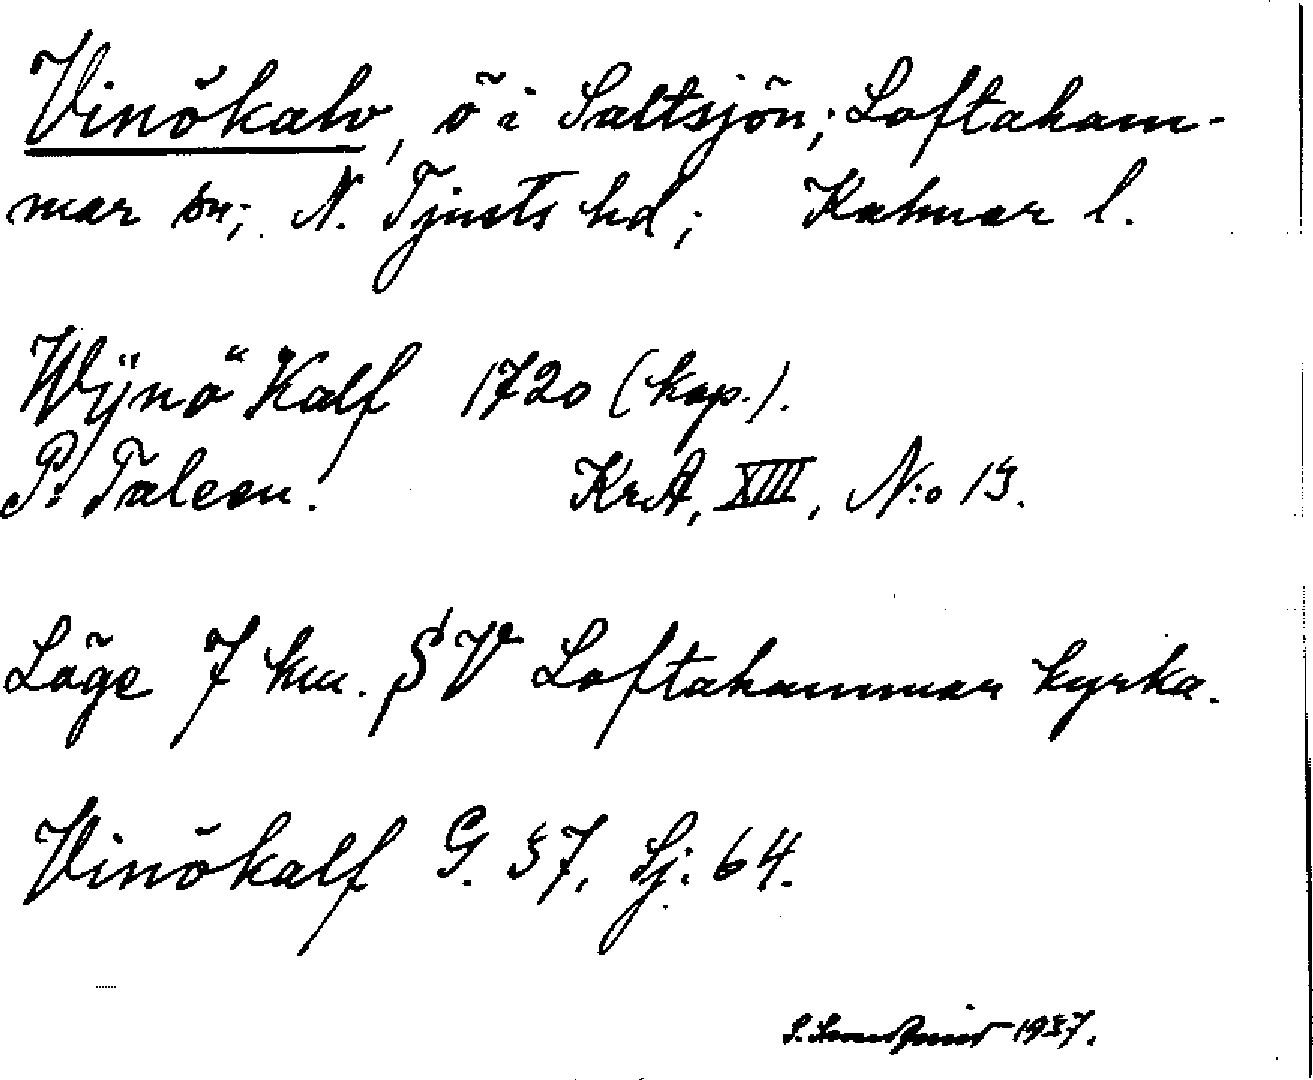 Vinökalv, ö i Saltsjön; Loftaham-
mar sn; N. Tjusts hd; Kalmar l.
Wÿnö Kalf 1720 (kop.).
P. Taleen. KrA, XIII, N:o 13.
Läge 7 km. SV Loftahammar kyrka.
Vinökalf G. 57, Sj: 64.
1937.